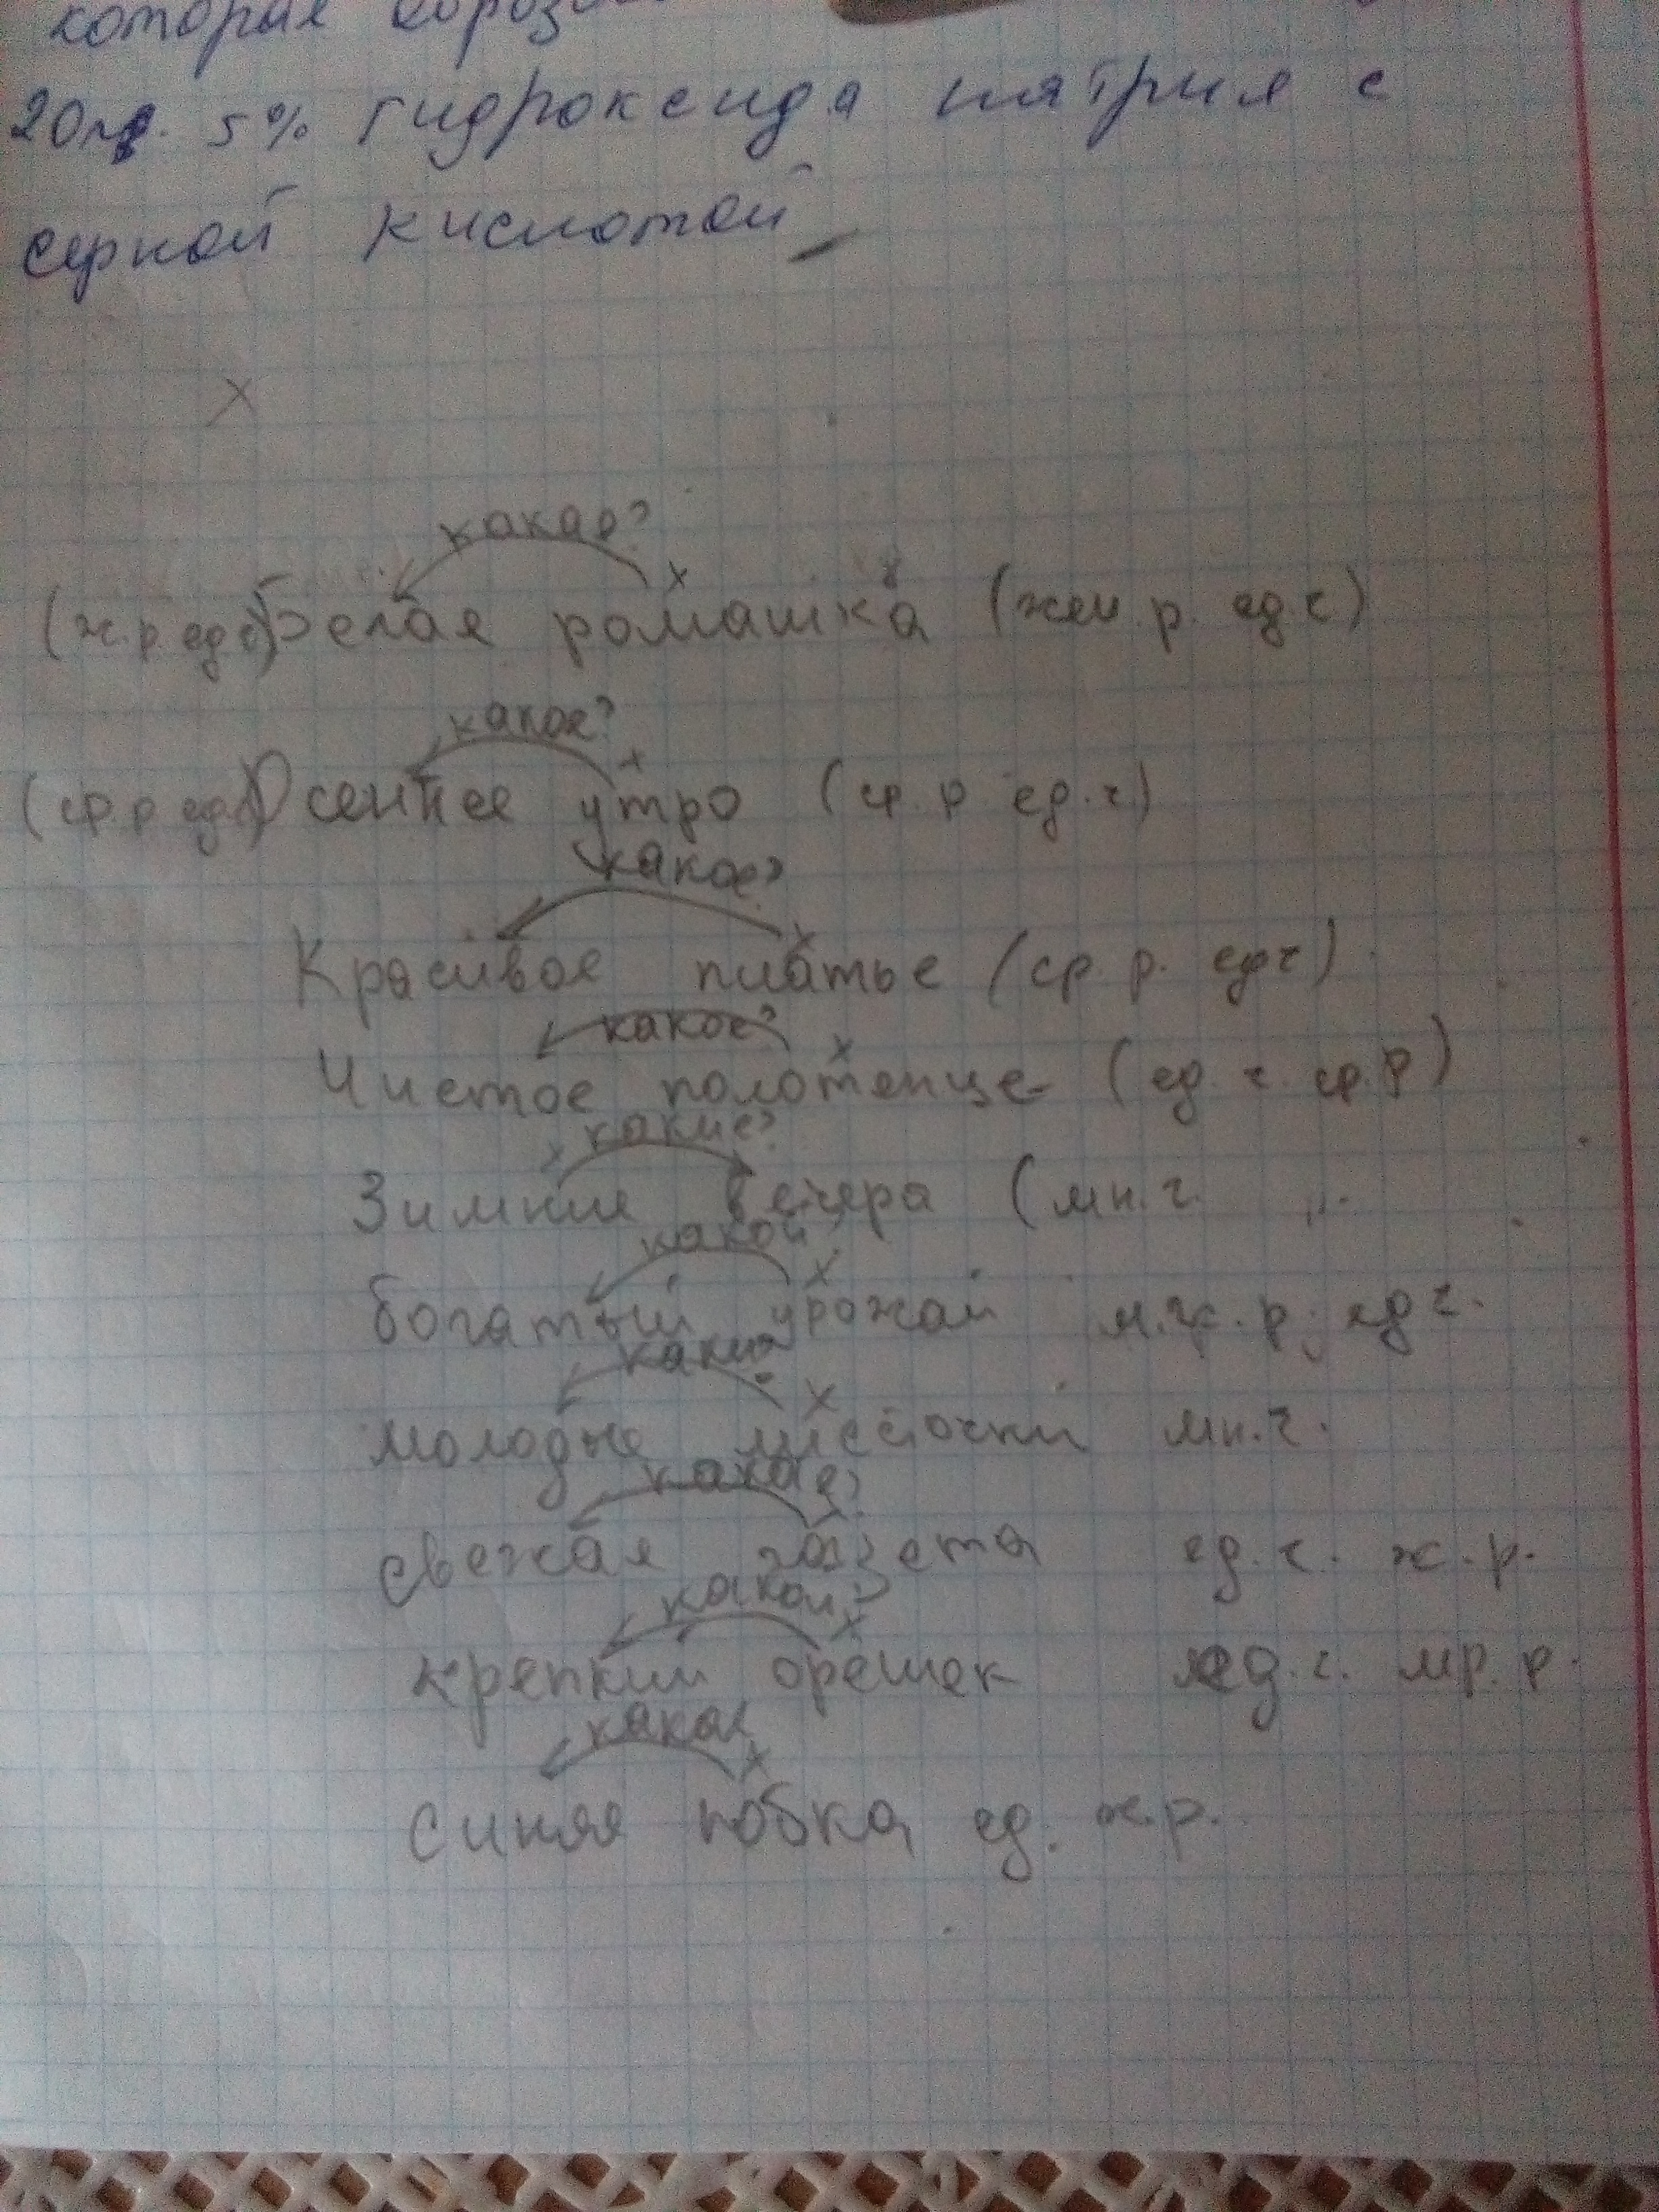 которая
20гр. 5% гидроксида натрия с
серной кислотой
какая?
(ж.р. ед.ч) Белая ромашка (жен. р. ед.ч)
какое?
(ср.р ед.ч) Осеннее утро (ср. р ед.ч)
какое?
Красивое платье (ср. р. ед ч)
какое?
Чистое полотенце (ед. ч. ср.р)
какие?
Зимние вечера (мн.ч.
какой?
богатый урожай р. ед ч.
какие
молодые листочки мн.ч.
какая?
свежая газета ед. ч. ж.р.
какой?
крепкий орешек ед.ч. мр. р.
какая
синяя юбка ед. ж.р.